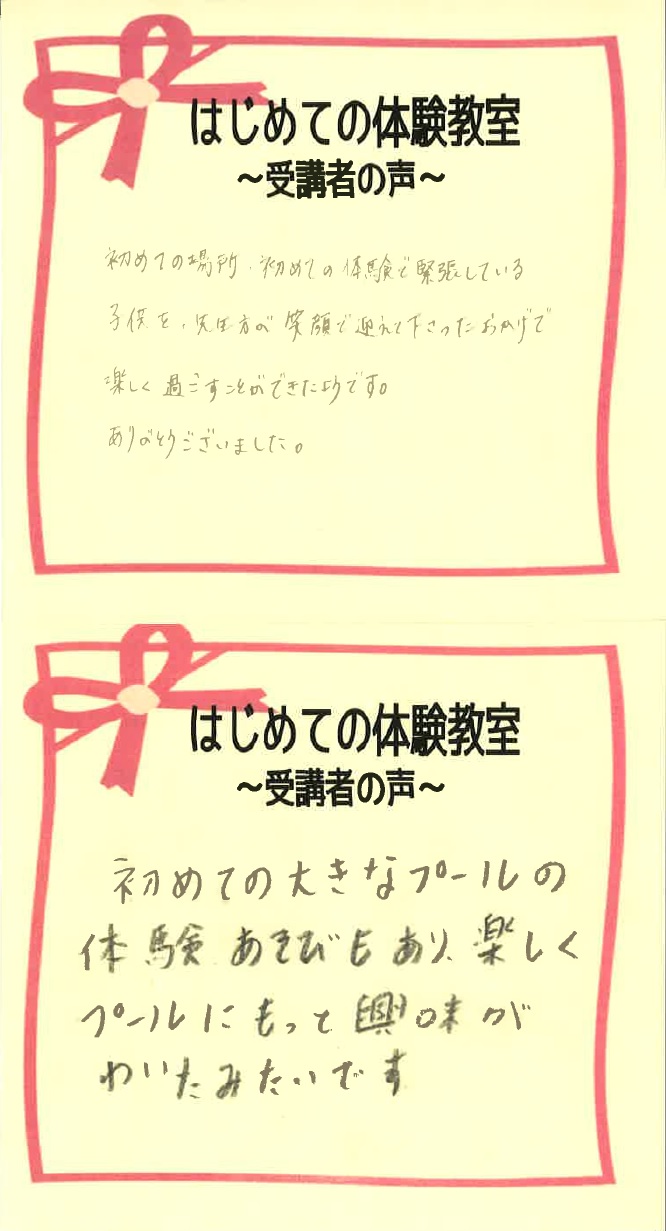 はじめての体験教室
～受講者の声～
初めての場所、初めての体験で緊張している
子供を、先生方が笑顔で迎えて下さったおかげで
楽しく過ごすことができたようです。
ありがとうございました。
はじめての体験教室
～受講者の声～
初めての大きなプールの
体験 あそびもあり、楽しく
プールにもっと興味が
わいたみたいです